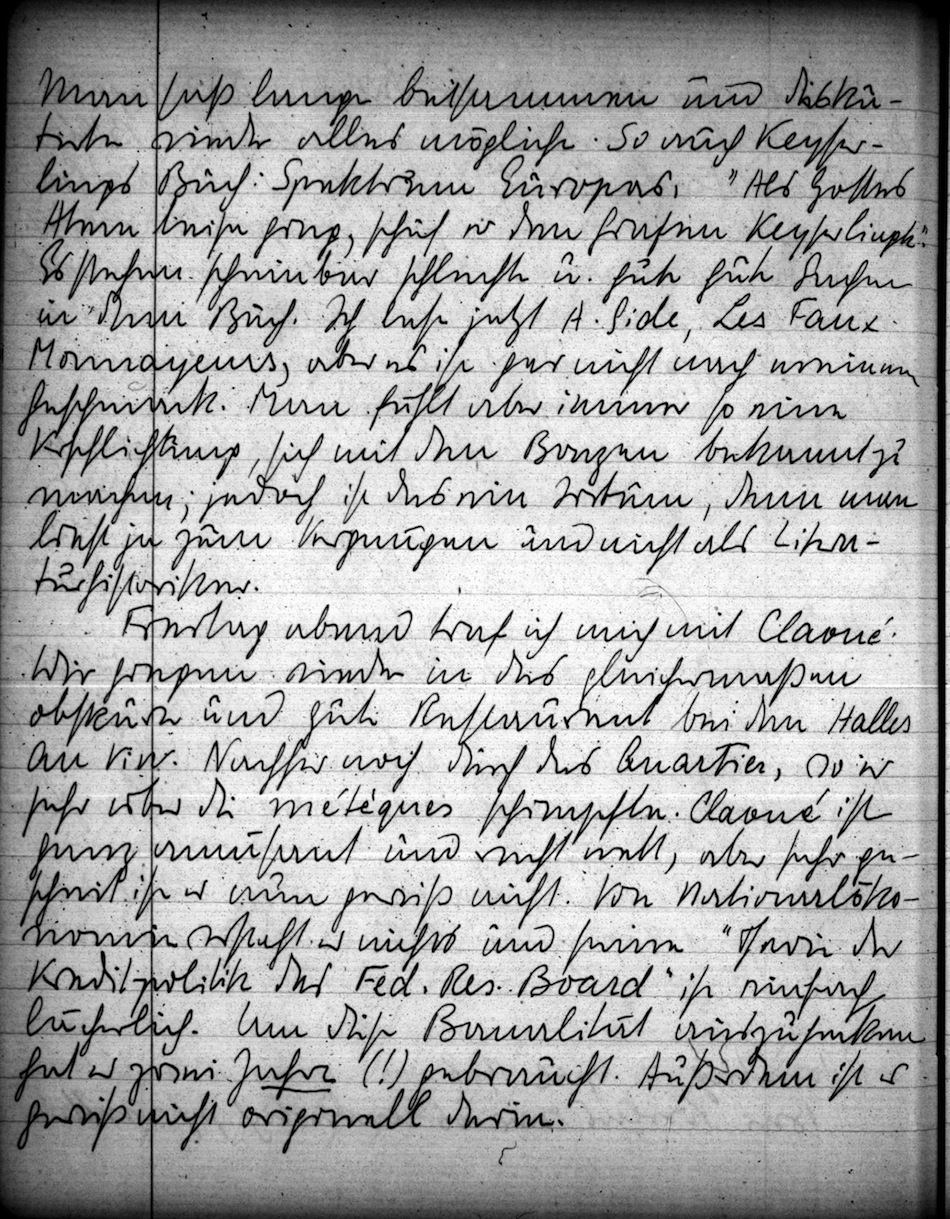 Man saß lange beisammen und disku-
tierte wieder alles mögliche. So auch Keyser-
lings Buch: Spektrum Europas. "Als Gottes
Atem leise ging, schuf er den Grafen Keyserlingk".
Es stehen scheinbar schlechte u. gute gute Sachen
in dem Buch. Ich lese jetzt A. Gide, Les Faux
Monnayeurs, aber es ist gar nicht nach meinem
Geschmack. Man fühlt aber immer so eine
Verpflichtung, sich mit den Bonzen bekannt zu
machen; jedoch ist das ein Irrtum, denn man
liest ja zum Vergnügen und nicht als Litera-
turhistoriker.
Freitag abend traf ich mich mit Claoué.
Wir gingen wieder in das gleichermaßen
obskure und gute Restaurant bei den Halles
au vin. Nachher noch durch das Quartier, wo er
sehr über die métèques schimpfte. Claoué ist
ganz amüsant und recht nett, aber sehr ge-
scheit ist er nun gewiß nicht. Von Nationalöko-
nomie versteht er nichts und seine "Teorie der
Kreditpolitik des Fed. Res. Board" ist einfach
lächerlich. Um diese Banalität auszuhecken
hat er zwei Jahre (!) gebraucht. Außerdem ist er
gewiß nicht originell darin.